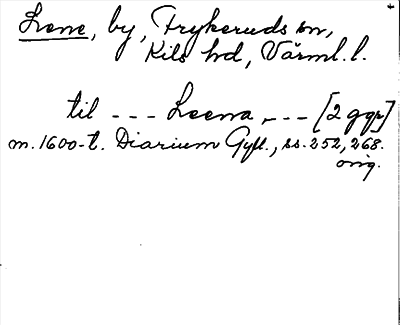 Lene, by, Frykeruds sn,
Kils hd, Värml. l.
til --- Leena, -- [2 ggr]
m. 1600-t. Diarium Gyll., ss. 252, 268.
orig.